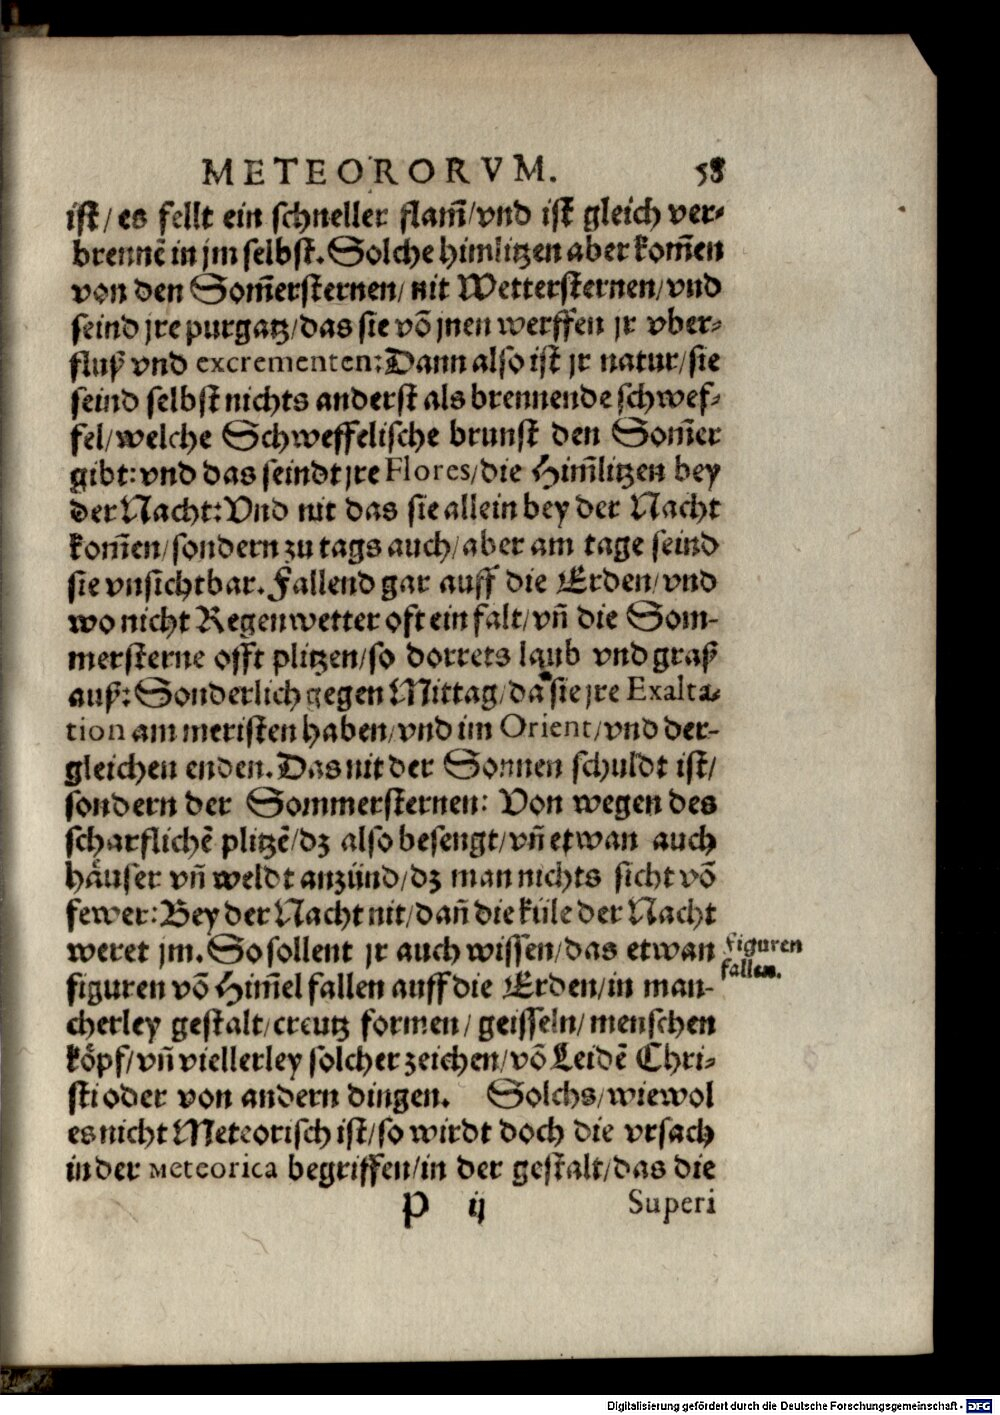 METEORORVM. 58
ist/ es fellt ein schneller flam̃/vnd ist gleich ver-
brennẽ in jm selbst. Solche himlitzen aber kom̃en
von den Som̃ersternen/ nit Wettersternen/ vnd
seind jre purgatz/das sie võ jnen werffen jr vber-
fluß vnd excrementen: Dann also ist jr natur/sie
seind selbst nichts anderst als brennende schwef-
fel/welche Schweffelische brunst den Som̃er
gibt: vnd das seindt jre Flores/die Him̃litzen bey
der Nacht: Vnd nit das sie allein bey der Nacht
kom̃en/sondern zu tags auch/aber am tage seind
sie vnsichtbar. Fallend gar auff die Erden/vnd
wo nicht Regenwetter oft ein falt/vñ die Som-
mersterne offt plitzen/so dorrets laub vnd graß
auß: Sonderlich gegen Mittag/da sie jre Exalta-
tion am meristen haben/vnd im Orient/vnd der-
gleichen enden. Das nit der Sonnen schuldt ist/
sondern der Sommersternen: Von wegen des
scharflichẽ plitzẽ/dz also besengt/vñ etwan auch
häuser vñ weldt anzünd/dz man nichts sicht võ
fewer: Bey der Nacht nit/dañ die küle der Nacht
weret jm. So sollent jr auch wissen/das etwan
figuren võ Him̃el fallen auff die Erden/in man-
cherley gestalt/creutz formen/ geisseln/menschen
köpf/vñ viellerley solcher zeichen/võ Leidẽ Chri-
sti oder von andern dingen. Solchs/wiewol
es nicht Meteorisch ist/so wirdt doch die vrsach
in der Meteorica begriffen/in der gestalt/das die
P ij Superi
Figuren
fallen.
Digitalisierung gefördert durch die Deutsche Forschungsgemeinschaft - DFG